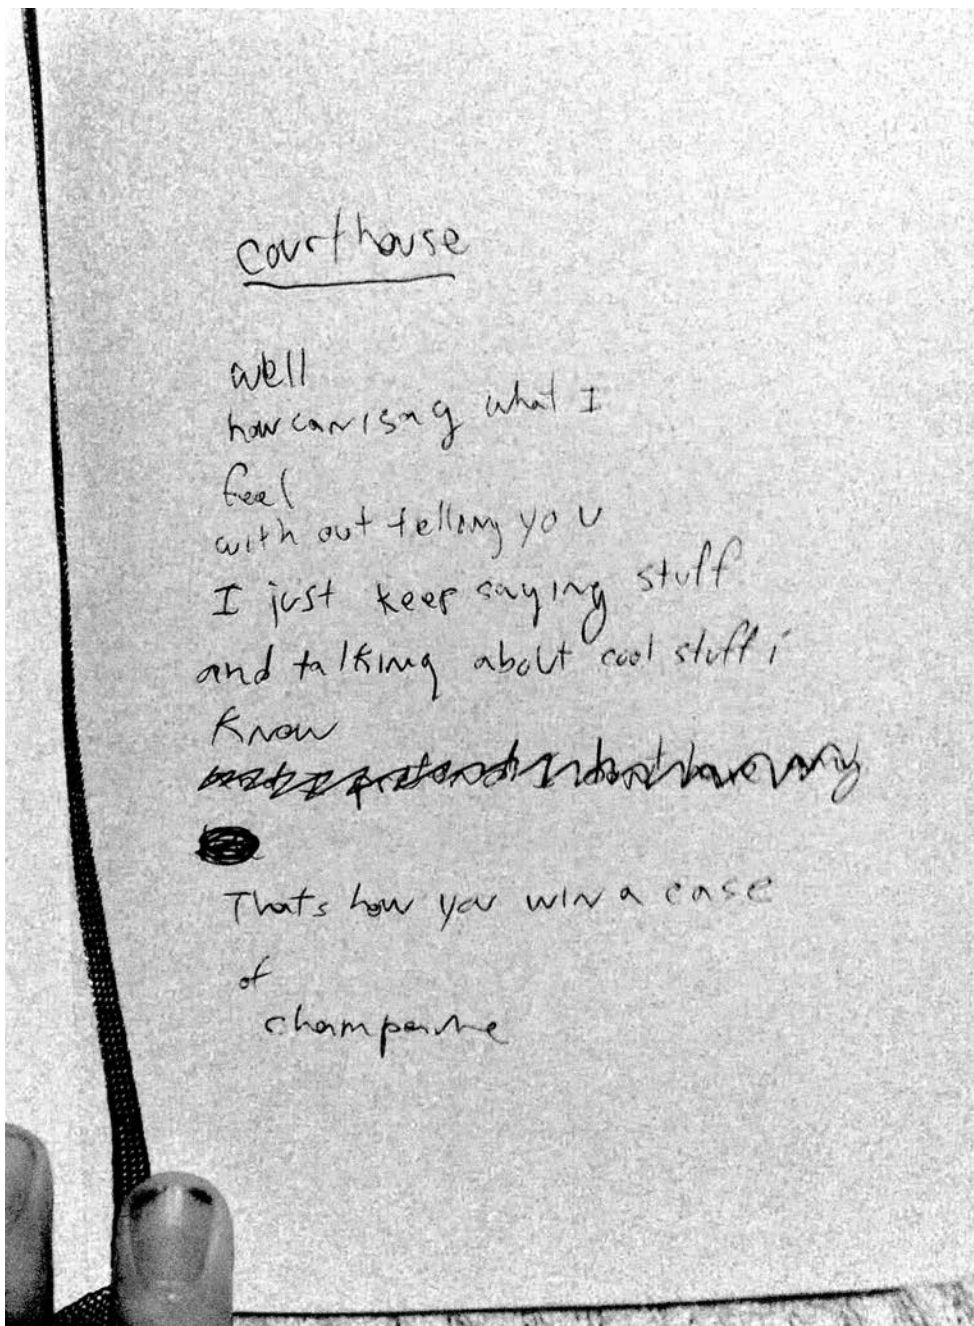 courthouse
well
how can i say what I
feel
with out telling you
I just keep saying stuff
and talking about cool stuff i
know
and I pretend I don't have any
Thats how you win a case
of
champaine